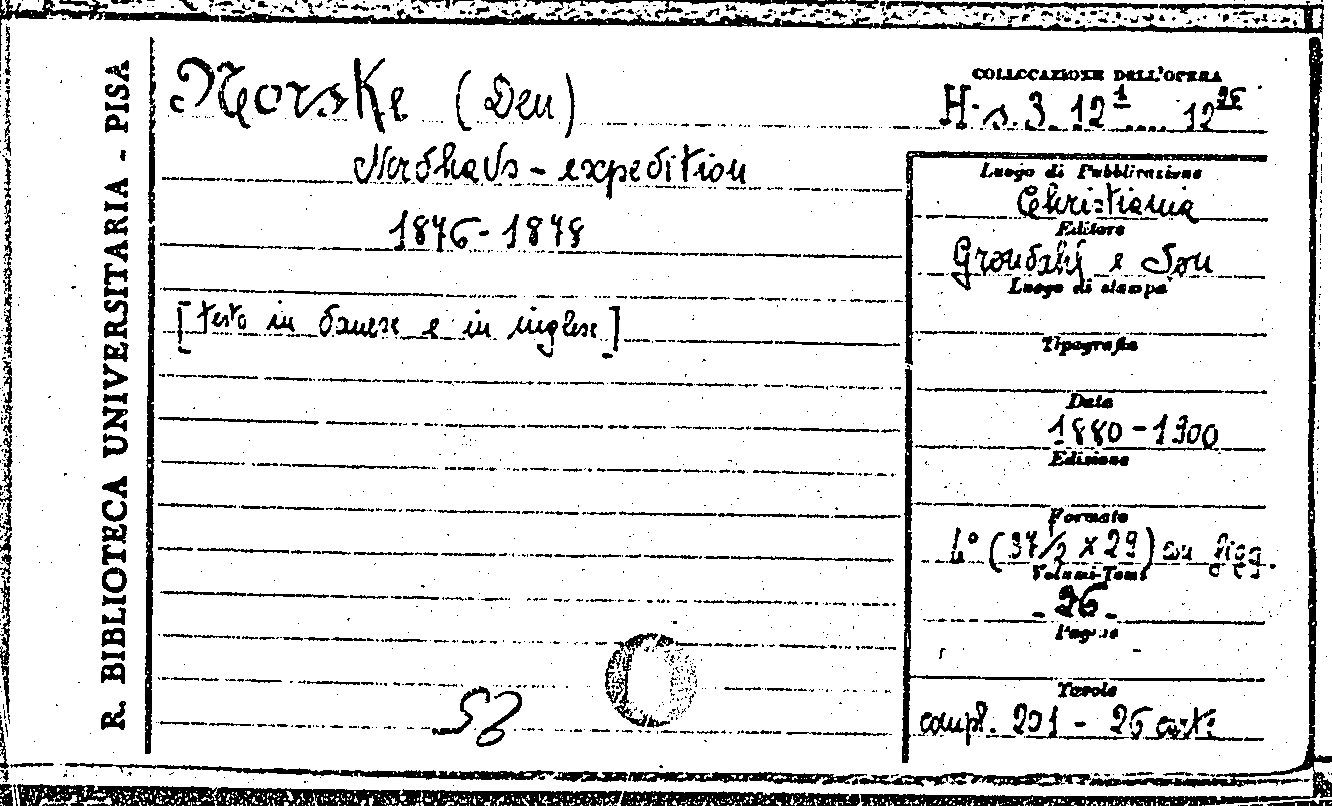 R. BIBLIOTECA UNIVERSITARIA - PISA
Norske (Den)
Nordhavs - expedition
1876 - 1878
[testo in danese e in inglese]
52
COLLOCAZIONE DELL'OPERA
H. s. 3. 12 1 .... 12 26
Luogo di Pubblicazione
Christiania
Editore
Grondahl e Son
Luogo di stampa
Tipografia
Data
1880 - 1900
Edizione
Formato
4° (37/2 x 29) cu figg.
Volumi-Tomi
- 26 -
Pagine
Tavole
compl. 201 - 25 carte